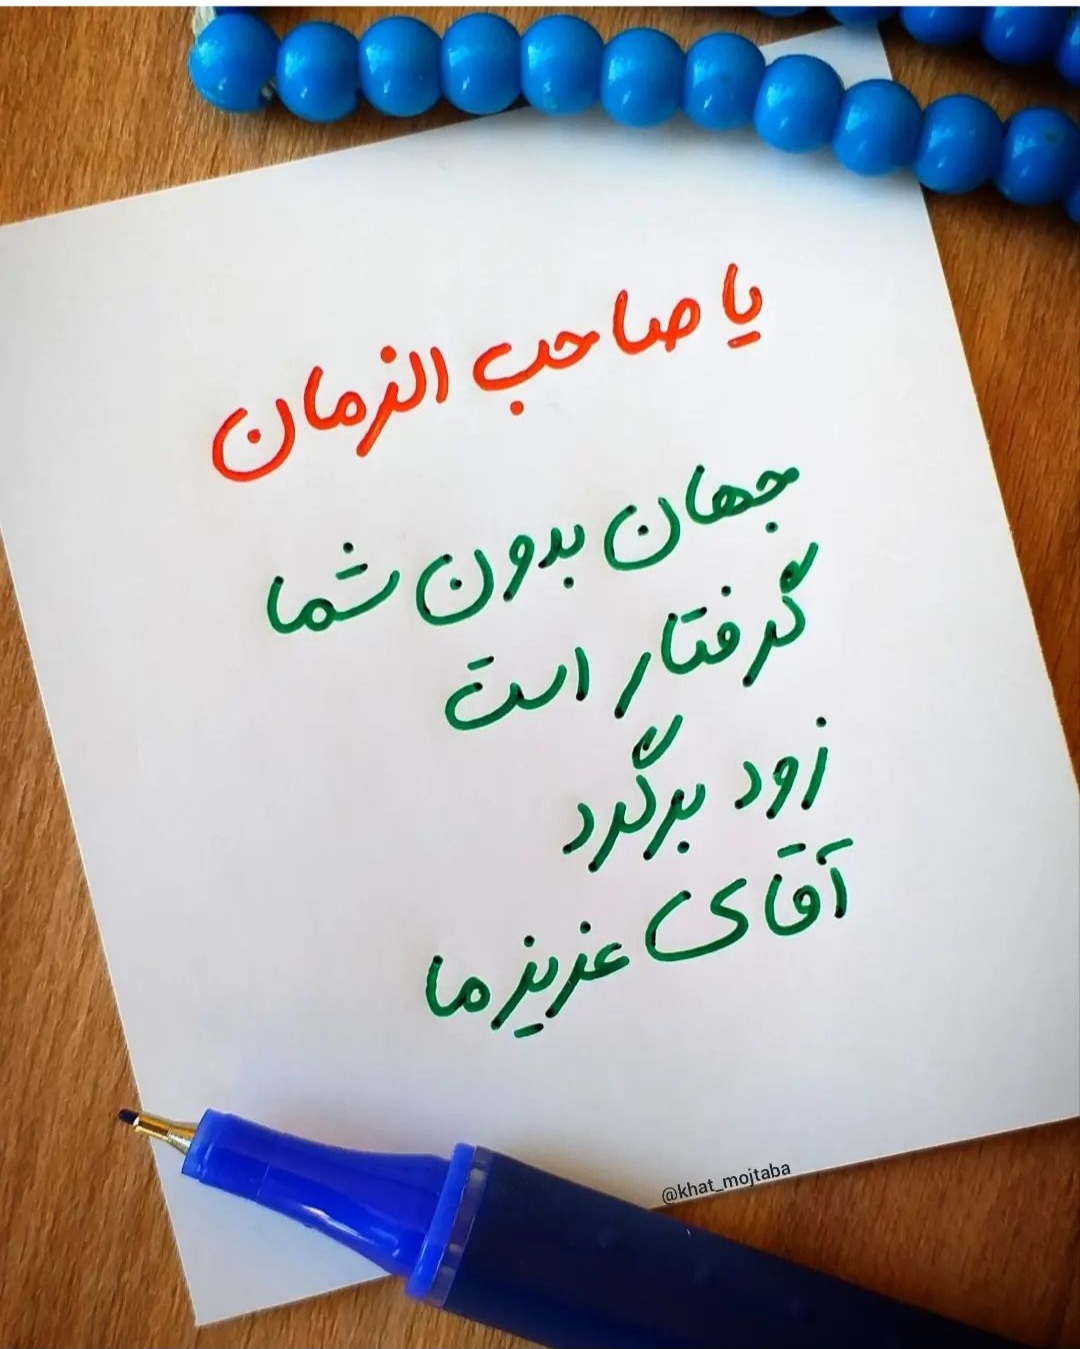 یا صاحب الزمان
جهان بدون شما
گرفتار است
زود برگرد
آقای عزیز ما
@khat_mojtaba